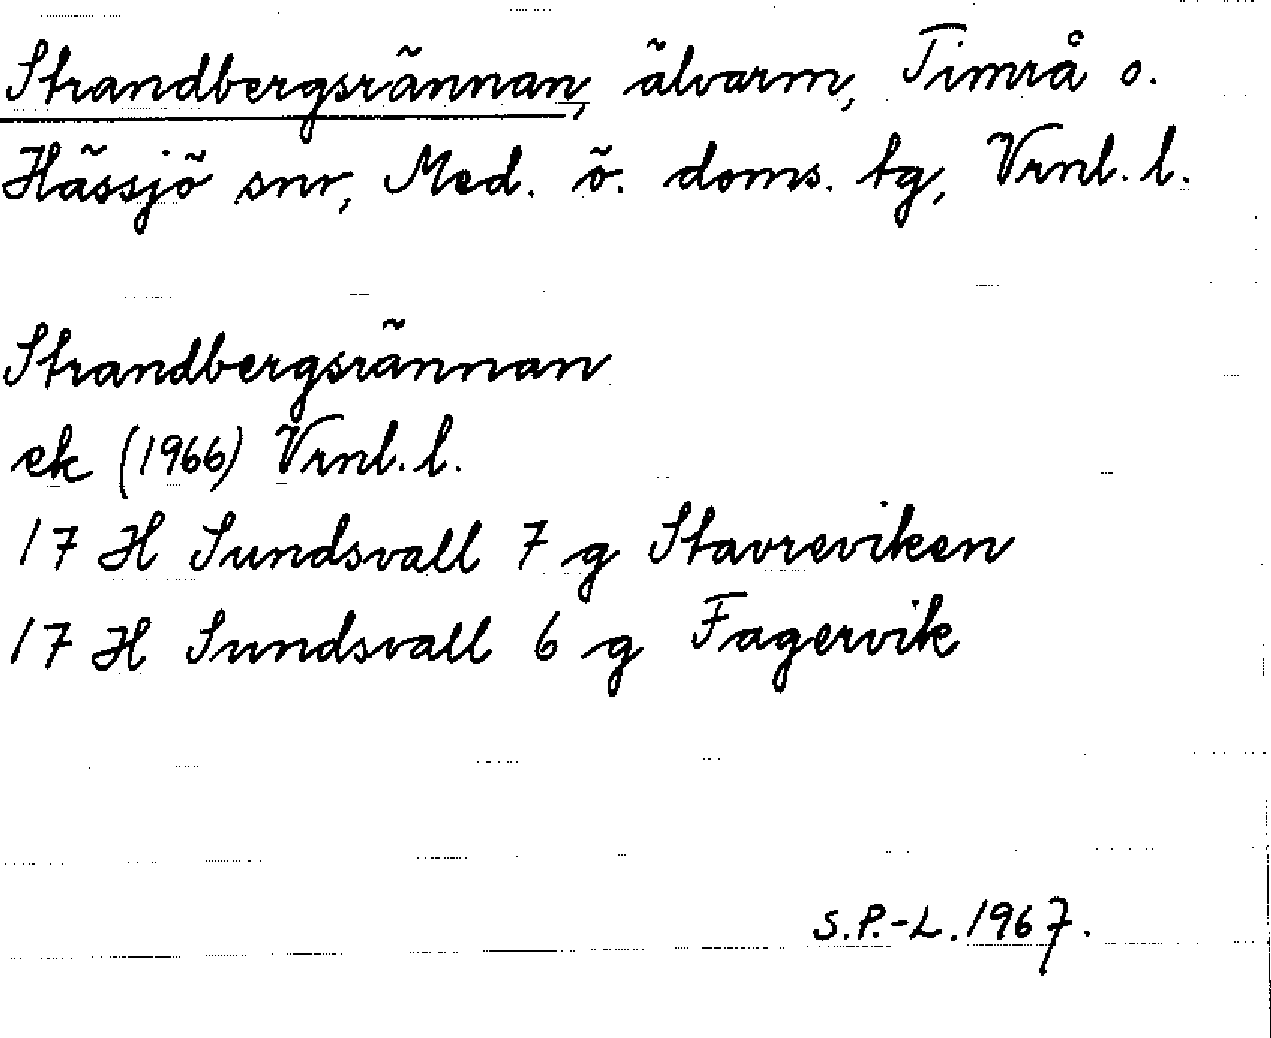 Strandbergsrännan, älvarm, Timrå o.
Hässjö snr, Med. ö. doms. tg, Vrnl. l.
Strandbergsrännan
ek (1966) Vrnl. l.
17 H Sundsvall 7 g Stavreviken
17 H Sundsvall 6 g Fagervik
S.P.-L. 1967.